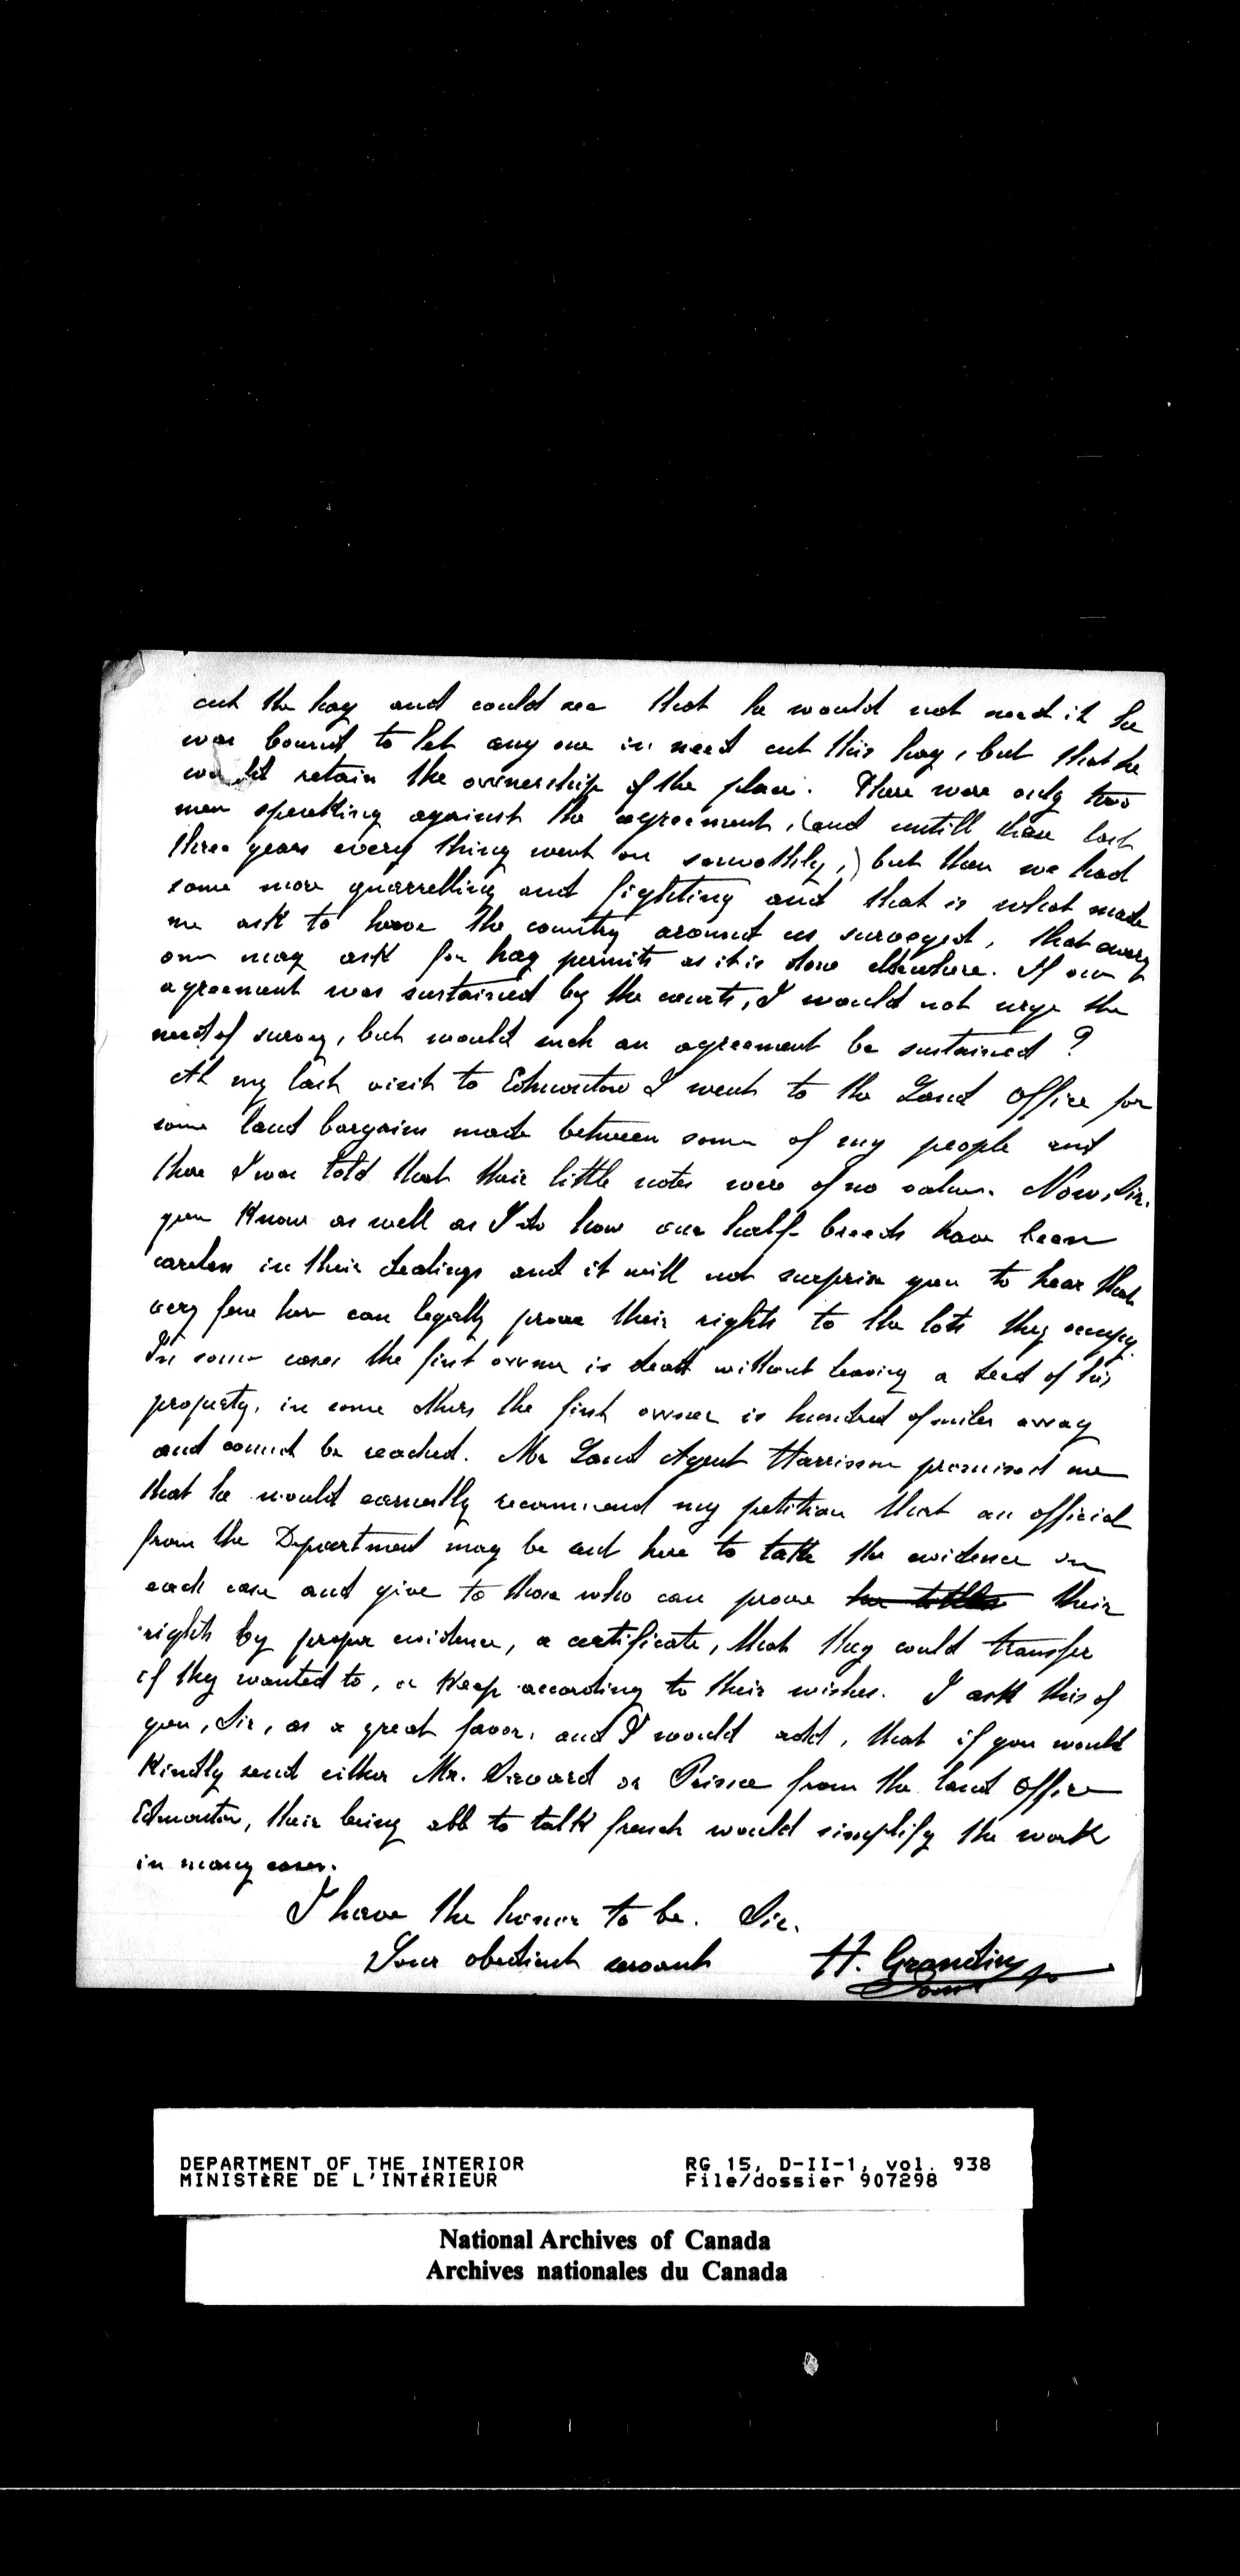 cut the hay and could see that he would not need it he
was bound to let any one in need cut this hay, but that he
would retain the ownership of the place. There were only two
men speaking against the agreement, (and untill these last
three years every thing went on smoothly,) but then we had
some more quarrelling and fighting and that is what made
me ask to have the country around us surveyed, that every
one may ask for hay permits as it is done elsewhere. If our
agreement was sustained by the courts, I would not urge the
need of survey, but would such an agreement be sustained?
At my last visit to Edmonton I went to the Land Office for
some land bargains made between some of my people and
there I was told that their little notes were of no value. Now, Sir,
you know as well as I do how our half-breeds have been
careless in their dealings and it will not surprise you to hear that
very few here can legally prove their rights to the lots they occupy.
In some cases the first owner is dead without leaving a deed of his
property, in some others the first owner is hundred of miles away
and cannot be reached. Mr Land Agent Harrison promised me
that he would earnestly recommend my petition that an official
from the Department may be sent here to take the evidence in
each case and give to those who can prove their
rights by proper evidence, a certificate, that they could transfer
if they wanted to, or keep according to their wishes. I ask this of
you, Sir, as a great favor, and I would add, that if you would
kindly send either Mr. or Prince from the land office
Edmonton, their being able to talk french would simplify the work
in many cases.
I have the honor to be. Sir.
Your obedient servant H. Grandin
DEPARTMENT OF THE INTERIOR RG 15, D-II-1, vol. 938
MINISTÈRE DE L'INTÉRIEUR File/dossier 907298
National Archives of Canada
Archives nationales du Canada